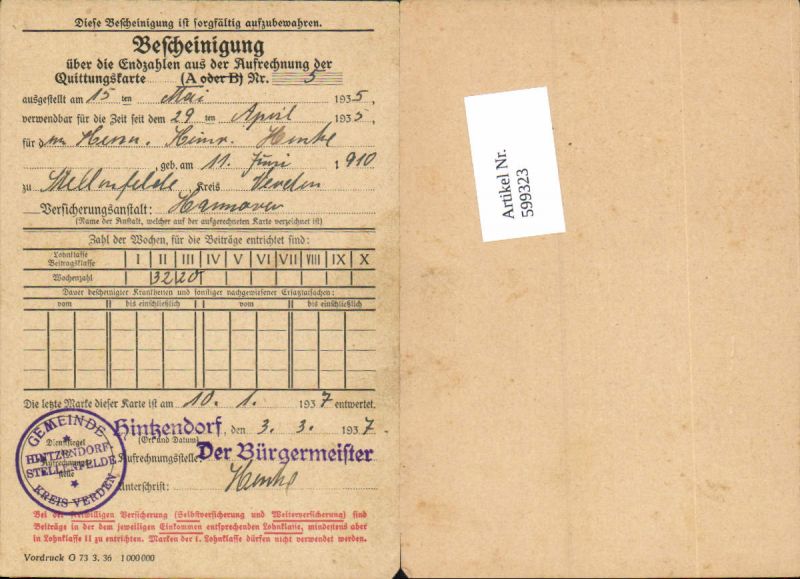 Diese Bescheinigung ist sorgfältig aufzubewahren.
Bescheinigung
über die Endzahlen aus der Aufrechnung der
Quittungskarte (A oder B) Nr. 5
ausgestellt am 15 ten Mai 1935,
verwendbar für die Zeit seit dem 29 ten April 1935,
für den Herrn. Heinr. Henke
, geb. am 11. Juni 1910
zu Stellenfelde Kreis Verden
Versicherungsanstalt: Hannover
(Name der Anstalt, welcher auf der aufgerechneten Karte verzeichnet ist)
Zahl der Wochen, für die Beiträge entrichtet sind:
Lohnklasse Beitragsklasse I II III IV V VI VII VIII IX X
Wochenzahl 32 20
Dauer bescheinigter Krankheiten und sonstiger nachgewiesener Ersatztatsachen:
vom bis einschließlich vom bis einschließlich
Die letzte Marke dieser Karte ist am 10. 1. 1937 entwertet.
Hintzendorf, den 3. 3. 1937.
(Ort und Datum)
Dienstsiegel
Aufrechnungsstelle
GEMEINDE
HINTZENDORF-
STELLENFELDE
KREIS VERDEN
Aufrechnungsstelle: Der Bürgermeister
Unterschrift: Henke
Bei der freiwilligen Versicherung (Selbstversicherung und Weiterversicherung) sind
Beiträge in der dem jeweiligen Einkommen entsprechenden Lohnklasse, mindestens aber
in Lohnklasse II zu entrichten. Marken der I. Lohnklasse dürfen nicht verwendet werden.
Vordruck G 73 3. 36 1 000 000
Artikel Nr.
599323